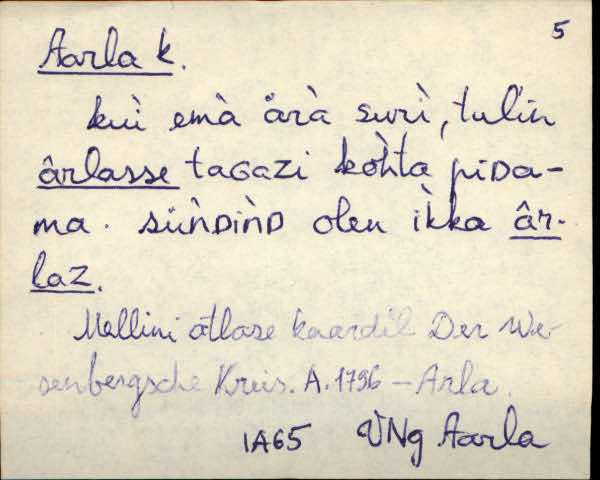 5
Aarla k.
kuì emà ärà surì, tuĺin
ârlasse taGazi kòhta piDa-
ma. süǹDìǹD olen ìkka âr-
laz.
Mellini atlase kaardil Der We-
senbergsche Kreis. A. 1796 – Arla.
IA65 VNg Aarla